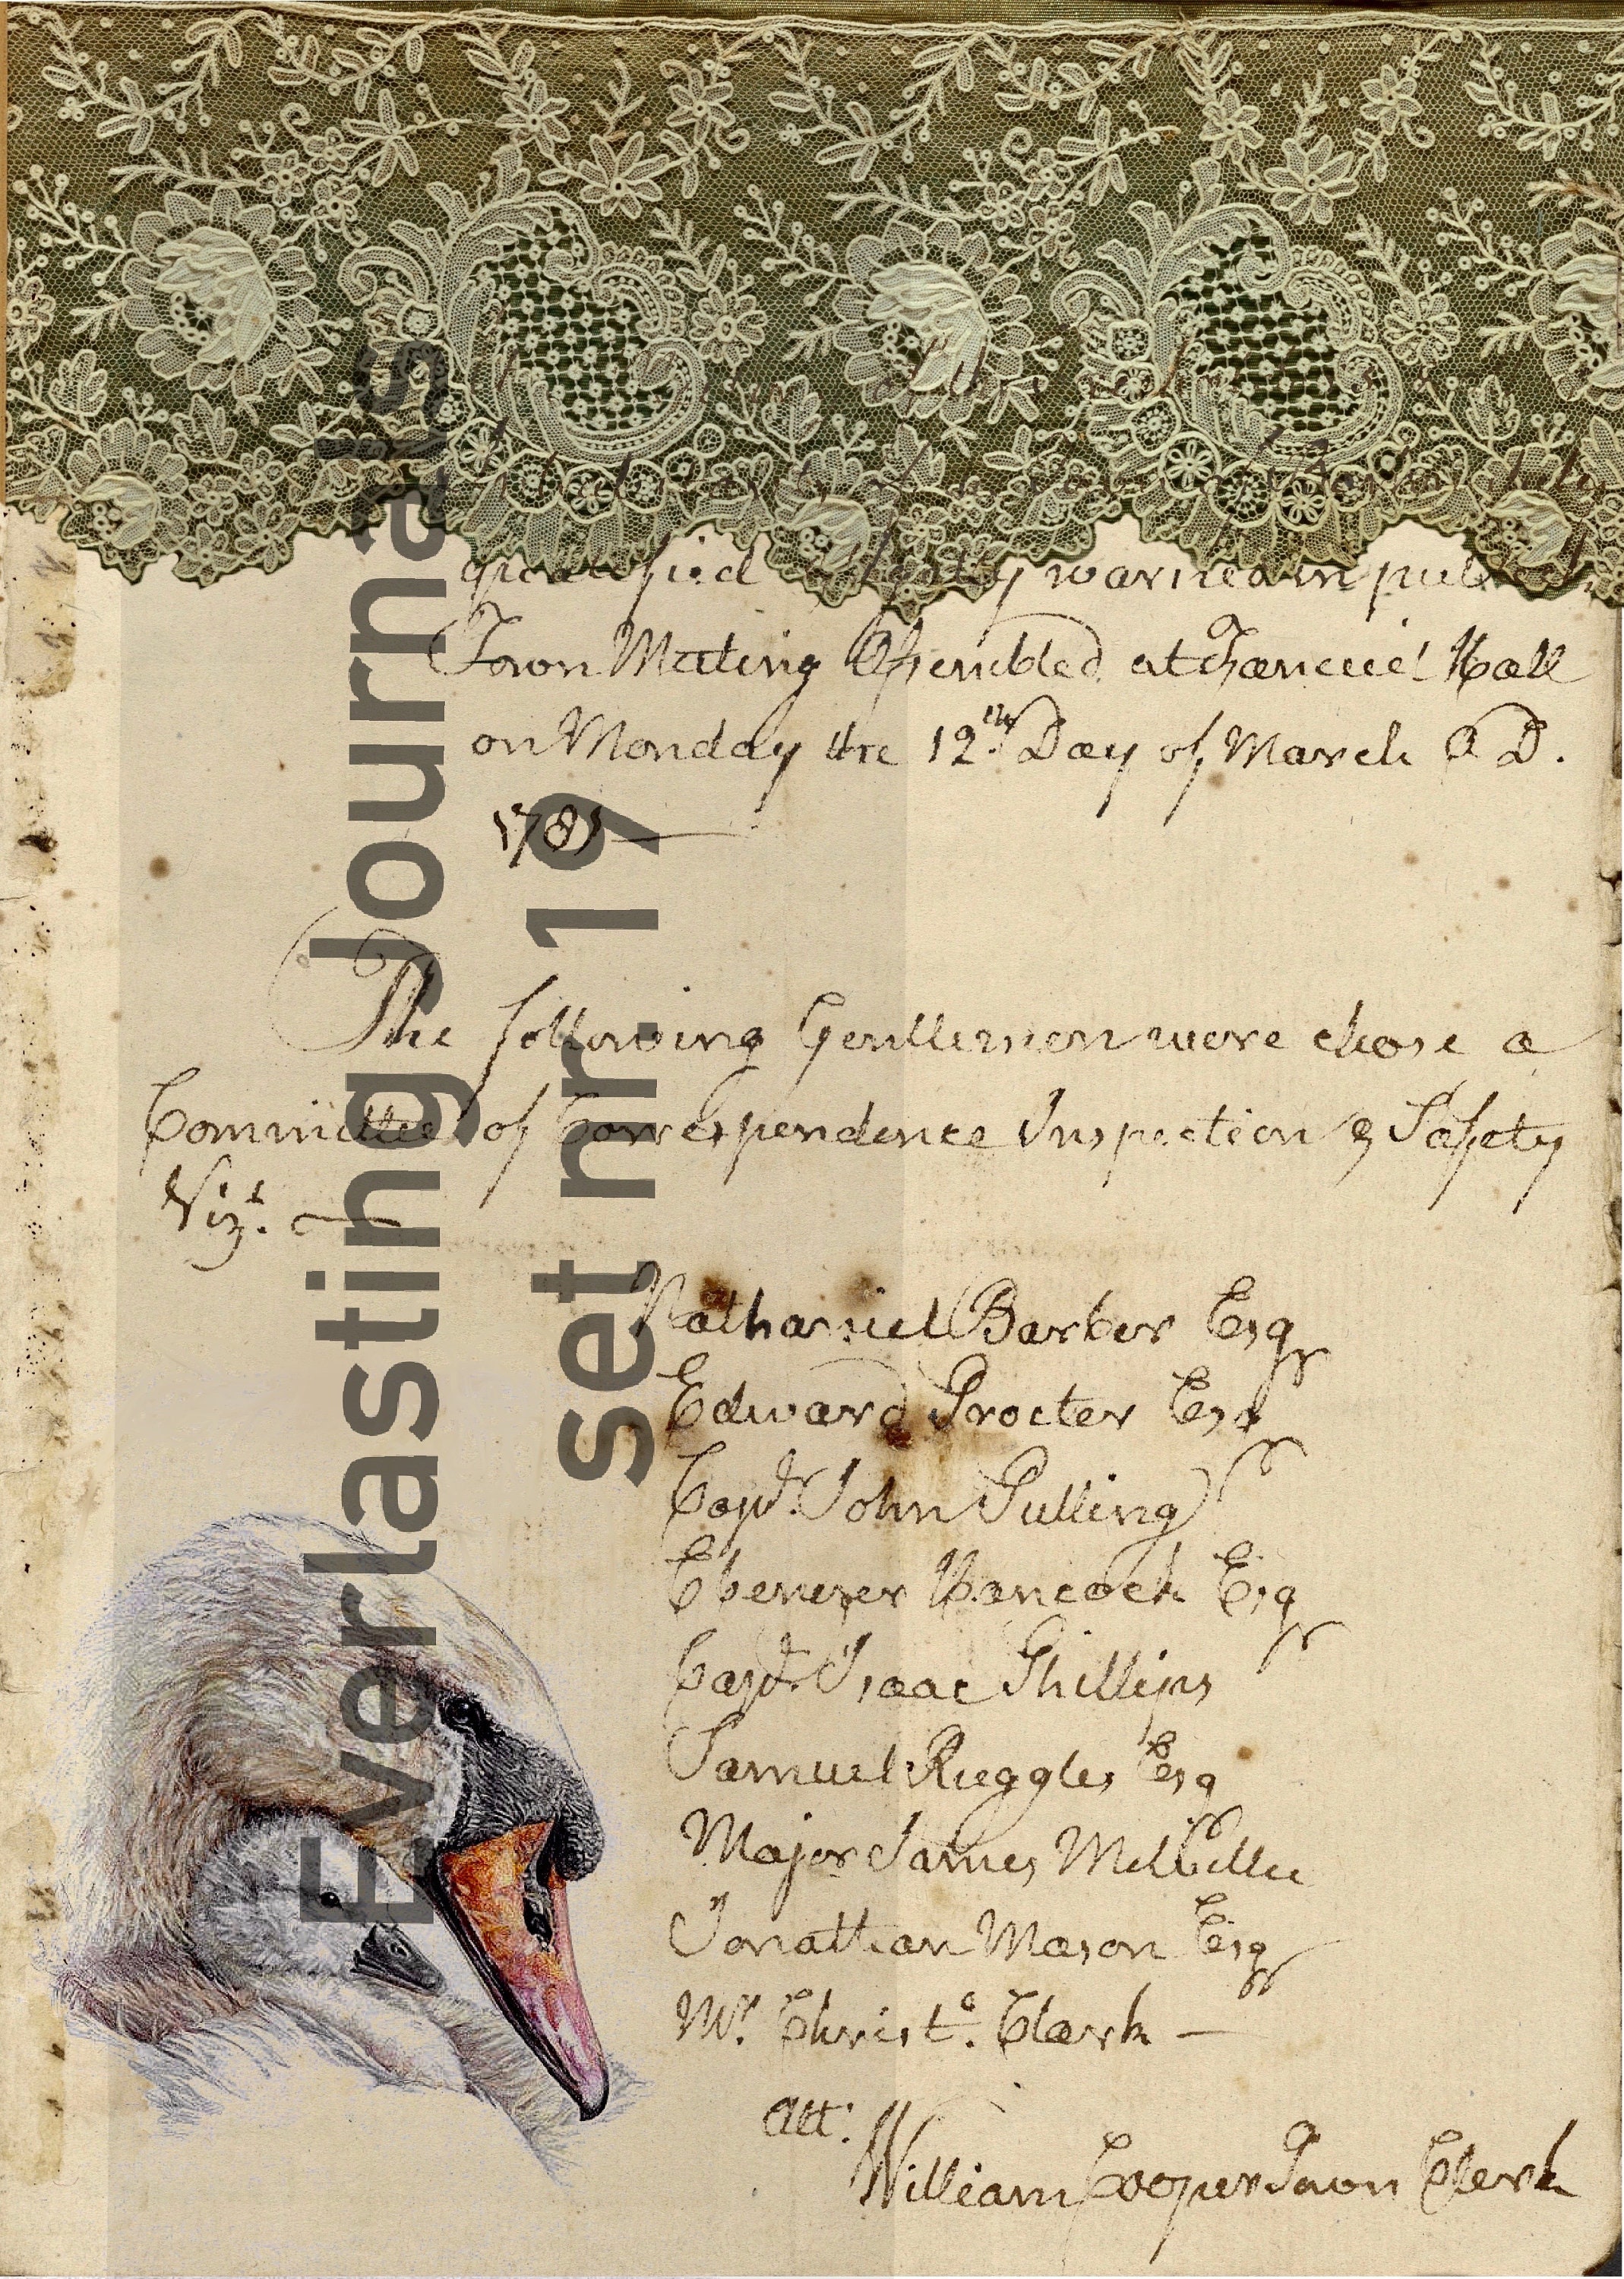 warned in
Town Meeting Assembled at Faneuil Hall
on Monday the 12th. Day of March A D.
1781
The following Gentlemen were chose a
Committee of Correspendence Inspection & Safety
Vizt.
Nathaniel Barber Esqr
Edward Procter Esqr
Capt. John Pulling
Ebenezer Hancock Esqr
Capt. Isaac Phillips
Samuel Ruggles Esq
Major James Melville
Jonathan Mason Esqr
Mr. Christo. Clark —
Att:
William Cooper Town Clerk
Everlasting Journals
set nr. 19